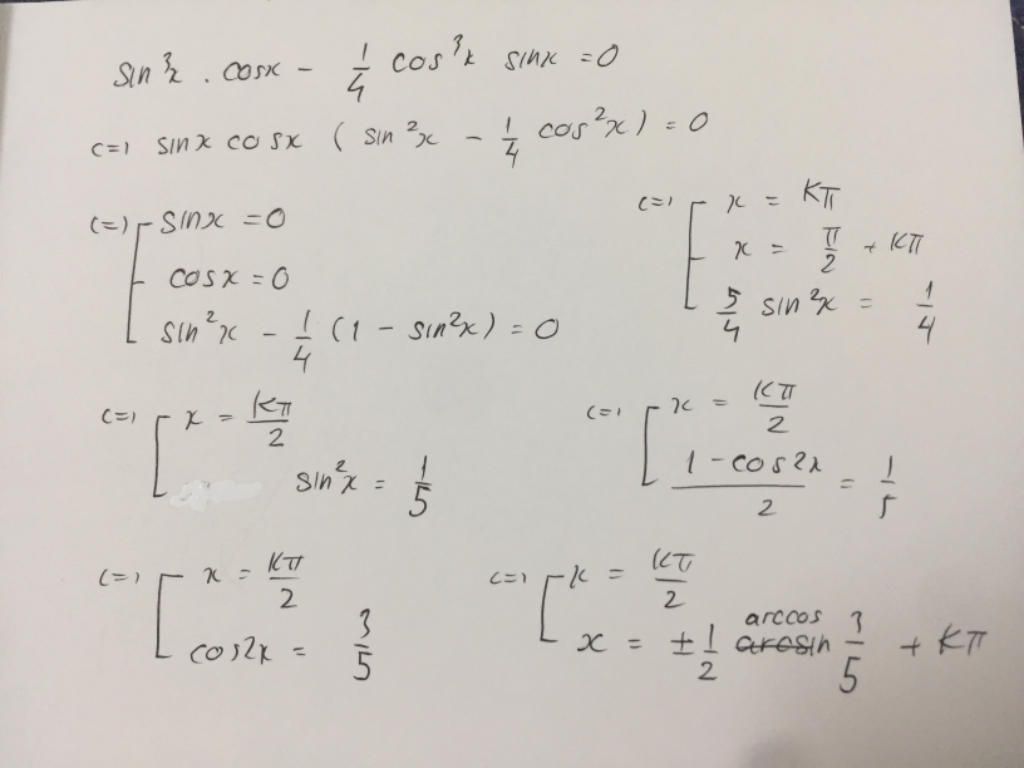 sin³x . cosx - 1/4 cos³x sinx = 0
<=> sinx cosx ( sin²x - 1/4 cos²x ) = 0
<=> [ sinx = 0
cosx = 0
sin²x - 1/4 (1 - sin²x) = 0
<=> [ x = kπ
x = π/2 + kπ
5/4 sin²x = 1/4
<=> [ x = kπ/2
sin²x = 1/5
<=> [ x = kπ/2
(1 - cos2x)/2 = 1/5
<=> [ x = kπ/2
cos2x = 3/5
<=> [ x = kπ/2
x = ± 1/2 arccos 3/5 + kπ